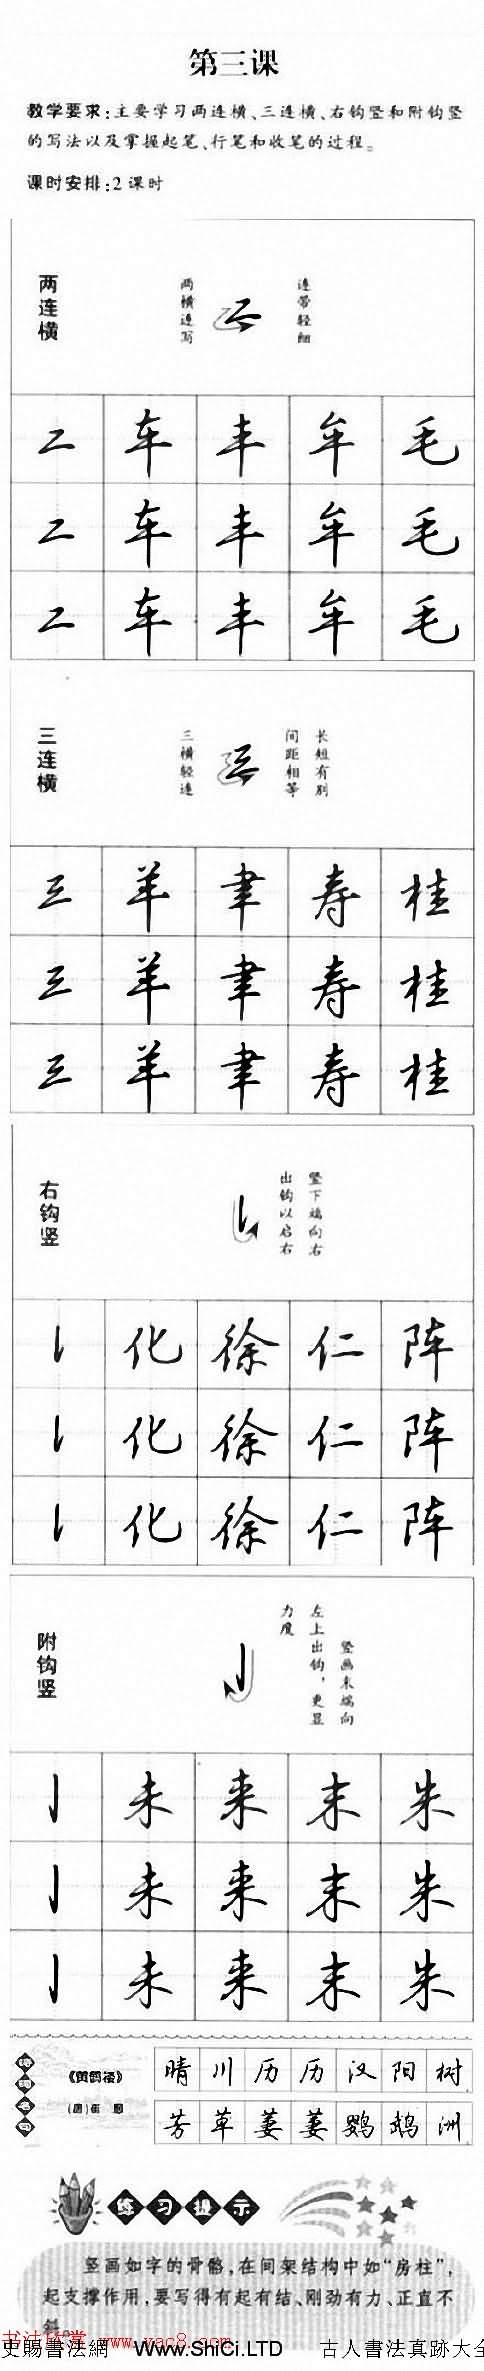 第三课
教学要求:主要学习两连横、三连横、右钩竖和附钩竖
的写法以及掌握起笔、行笔和收笔的过程。
课时安排:2课时
两连横
两横连写
连带轻细
二 车 丰 牟 毛
二 车 丰 牟 毛
二 车 丰 牟 毛
三连横
三横轻连
长短有别
间距相等
三 羊 聿 寿 桂
三 羊 聿 寿 桂
三 羊 聿 寿 桂
右钩竖
竖下端向右
出钩以启右
化 徐 仁 阵
化 徐 仁 阵
化 徐 仁 阵
附钩竖
竖画末端向
左上出钩，更显
力度
亅 未 来 末 朱
亅 未 来 末 朱
亅 未 来 末 朱
诗词名句
《黄鹤楼》
(唐)崔颢
晴川历历汉阳树
芳草萋萋鹦鹉洲
练习提示
竖画如字的骨骼,在间架结构中如"房柱",
起支撑作用,要写得有起有结、刚劲有力、正直不
斜。
书法欣赏
www.yac8.com
史賜書法網 www.ShiCi.LTD 古人書法真跡大全